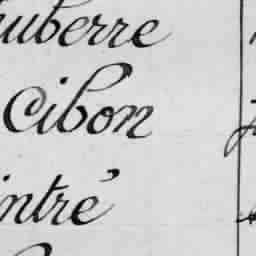 uberre
Cibon
intré